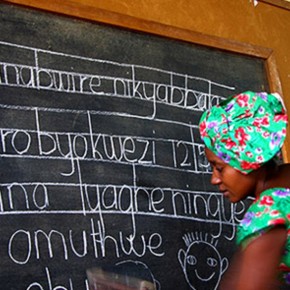 nabwire nikyabba
robyokwezi 12
na lyagheningye
omuthwe